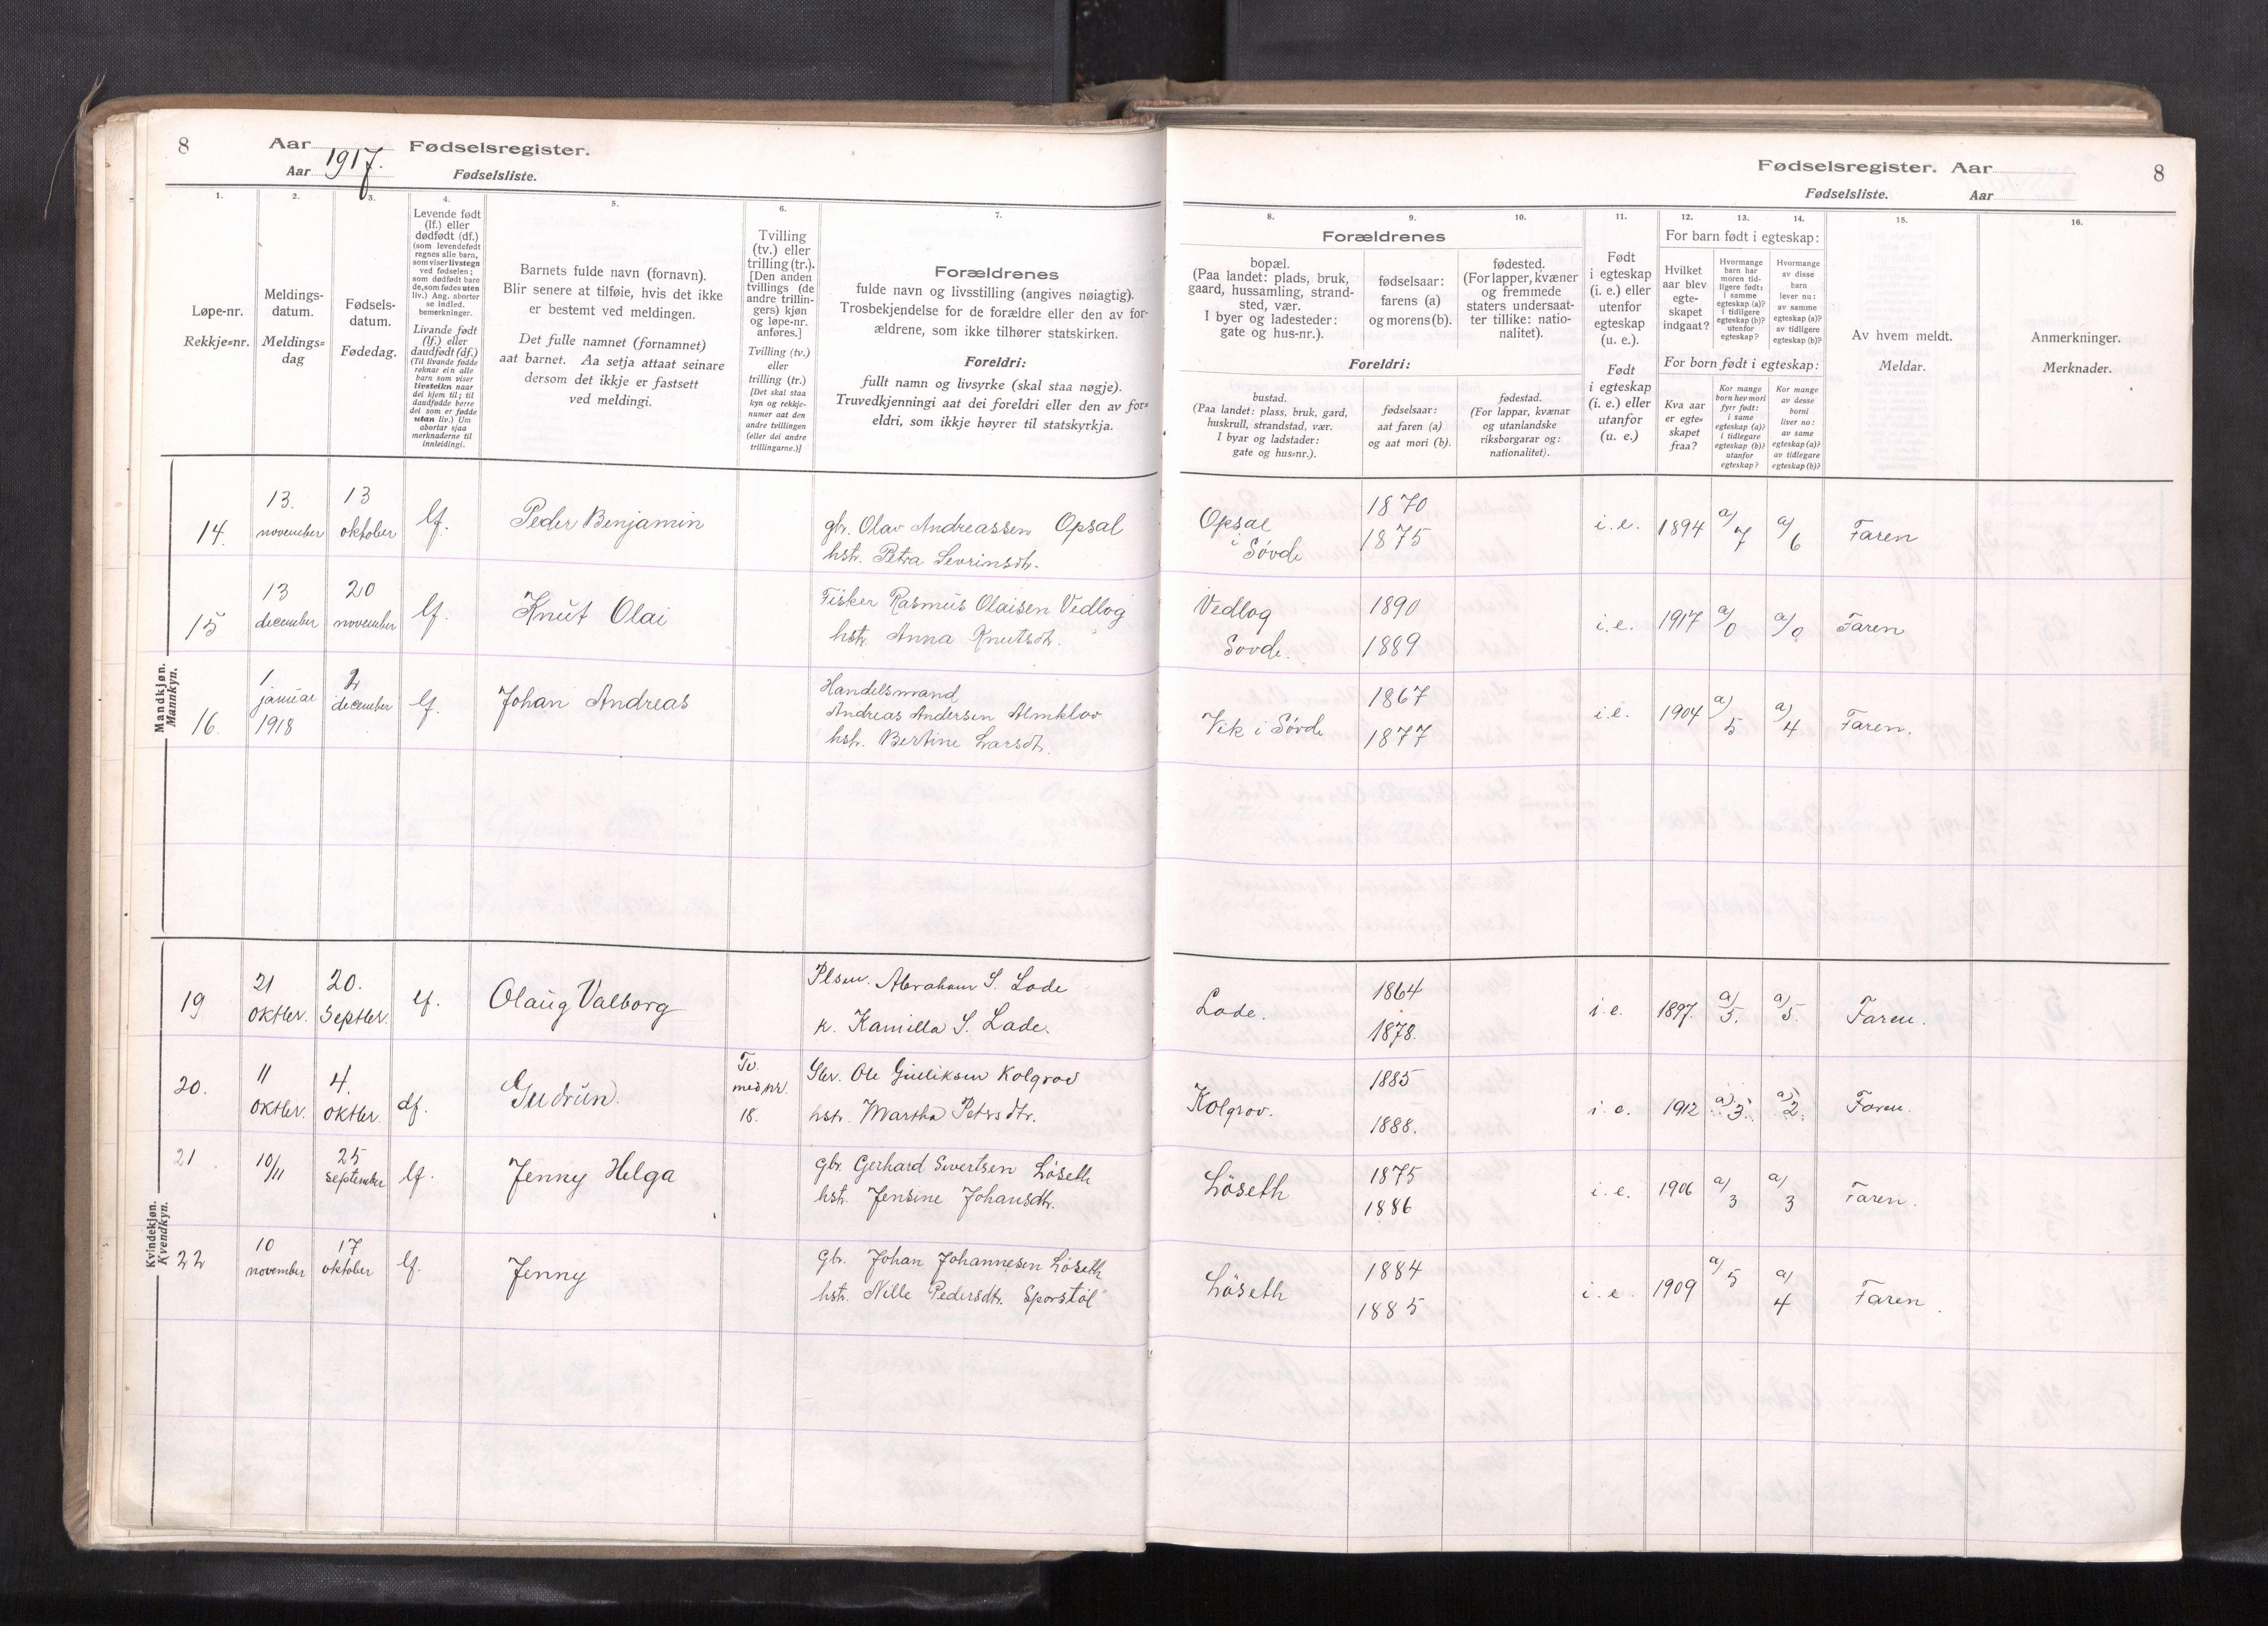 8
Aar
1917.
Fødselsregister.
Aar
Fødselsliste.
1.
2.
3.
4.
5.
6.
7.
Løpe-nr.
Rekkje-nr.
Meldings-
datum.
Meldings-
dag
Fødsels-
datum.
Fødedag.
Levende født
(lf.) eller
dødfødt (df.)
(som levendefødt
regnes alle barn,
som viser livstegn
ved fødselen;
som dødfødt bare
de, som fødes uten
liv.) Ang. aborter
se indled.
bemerkninger.
Livande født
(lf.) eller
daudfødt (df.)
(Til livande fødde
reknar ein alle
barn som viser
livsteikn naar
dei kjem til; til
daudfødde berre
dei som er fødde
utan liv.) Um
abortar sjaa
merknaderne til
innleidingi.
Barnets fulde navn (fornavn).
Blir senere at tilføie, hvis det ikke
er bestemt ved meldingen.
Det fulle namnet (fornamnet)
aat barnet. Aa setja attaat seinare
dersom det ikkje er fastsett
ved meldingi.
Tvilling
(tv.) eller
trilling (tr.).
[Den anden
tvillings (de
andre trillin-
gers) kjøn
og løpe-nr.
anføres.]
Tvilling (tv.)
eller
trilling (tr.)
[Det skal staa
kyn og rekkje-
numer aat den
andre tvillingen
(eller dei andre
trillingarne.)]
Forældrenes
fulde navn og livsstilling (angives nøiagtig).
Trosbekjendelse for de forældre eller den av for-
ældrene, som ikke tilhører statskirken.
Foreldri:
fullt namn og livsyrke (skal staa nøgje).
Truvedkjenningi aat dei foreldri eller den av for-
eldri, som ikkje høyrer til statskyrkja.
Mandkjøn.
Mannkyn.
14. 13. november 13 oktober lf. Peder Benjamin gbr. Olav Andreassen Opsal
hstr. Petra Sevrinsdtr.
15 13 december 20 november lf. Knut Olai Fisker Rasmus Olaisen Vedlog
hstr. Anna Knutsdtr. "
16. 1 januar 1918 2 december lf. Johan Andreas Handelsmand
Andreas Andersen Almklov
hstr. Bertine Larsdtr.
Kvindekjøn.
Kvendkyn.
19 21 oktbr. 20. Septbr. lf. Olaug Valborg Plsm. Abraham S. Lade
k. Kamilla S. Lade.
20. 11 oktbr. 4. oktbr. df. Gudrun. Tv. med nr. 18. Gbr. Ole Gulliksen Kolgrov
hstr. Martha Petersdtr.
21 10/11 25 September lf. Jenny Helga gbr. Gerhard Sivertsen Löseth
hstr. Jensine Johansdtr.
22 10 november 17 oktober lf. Jenny gbr. Johan Johannesen Löseth
hstr. Nille Pedersdtr. Sporstöl
Fødselsregister. Aar
8
Fødselsliste.
Aar
8.
9.
10.
11.
12.
13.
14.
15.
16.
Forældrenes
bopæl.
(Paa landet: plads, bruk,
gaard, hussamling, strand-
sted, vær.
I byer og ladesteder:
gate og hus-nr.).
fødselsaar:
farens (a)
og morens (b).
fødested.
(For lapper, kvæner
og fremmede
staters undersaat-
ter tillike: natio-
nalitet).
Foreldri:
bustad.
(Paa landet: plass, bruk, gard,
huskrull, strandstad, vær.
I byar og ladstader:
gate og hus-nr.).
fødselsaar:
aat faren (a)
og aat mori (b).
fødestad.
(For lappar, kvænar
og utanlandske
riksborgarar og:
nationalitet).
Født
i egteskap
(i. e.) eller
utenfor
egteskap
(u. e.).
Født
i egteskap
(i. e.) eller
utanfor
(u. e.)
For barn født i egteskap:
Hvilket
aar blev
egte-
skapet
indgaat?
Hvormange
barn har
moren tid-
ligere født:
i samme
egteskap (a)?
i tidligere
egteskap (b)?
utenfor
egteskap?
Hvormange
av disse
barn
lever nu:
av samme
egteskap (a)?
av tidligere
egteskap (b)?
For born født i egteskap:
Kva aar
er egte-
skapet
fraa?
Kor mange
born hev mori
fyrr født:
i same
egteskap (a)?
i tidlegare
egteskap (b)?
utanfor
egteskap?
Kor mange
av desse
borni
liver no:
av same
egteskap (a)?
av tidlegare
egteskap (b)?
Av hvem meldt.
Meldar.
Anmerkninger.
Merknader.
Opsal i Søvde 1870 1875 i. e. 1894 a/ 7 a/ 6 Faren
Vedlog Sovde. 1890 1889 i. e. 1917 a/ 0 a/ 0 Faren
Vik i Søvde 1867 1877 i. e. 1904 a/ 5 a/ 4 Faren.
Lade. 1864 1878. i. e. 1897. a/ 5. a/ 5. Faren.
Kolgrov. 1885 1888. i. e. 1912 a) 3. a) 2. Faren.
Löseth 1875 1886 i. e. 1906 a/ 3 a/ 3 Faren.
Löseth 1884 1885 i. e. 1909 a/ 5 a/ 4 Faren.